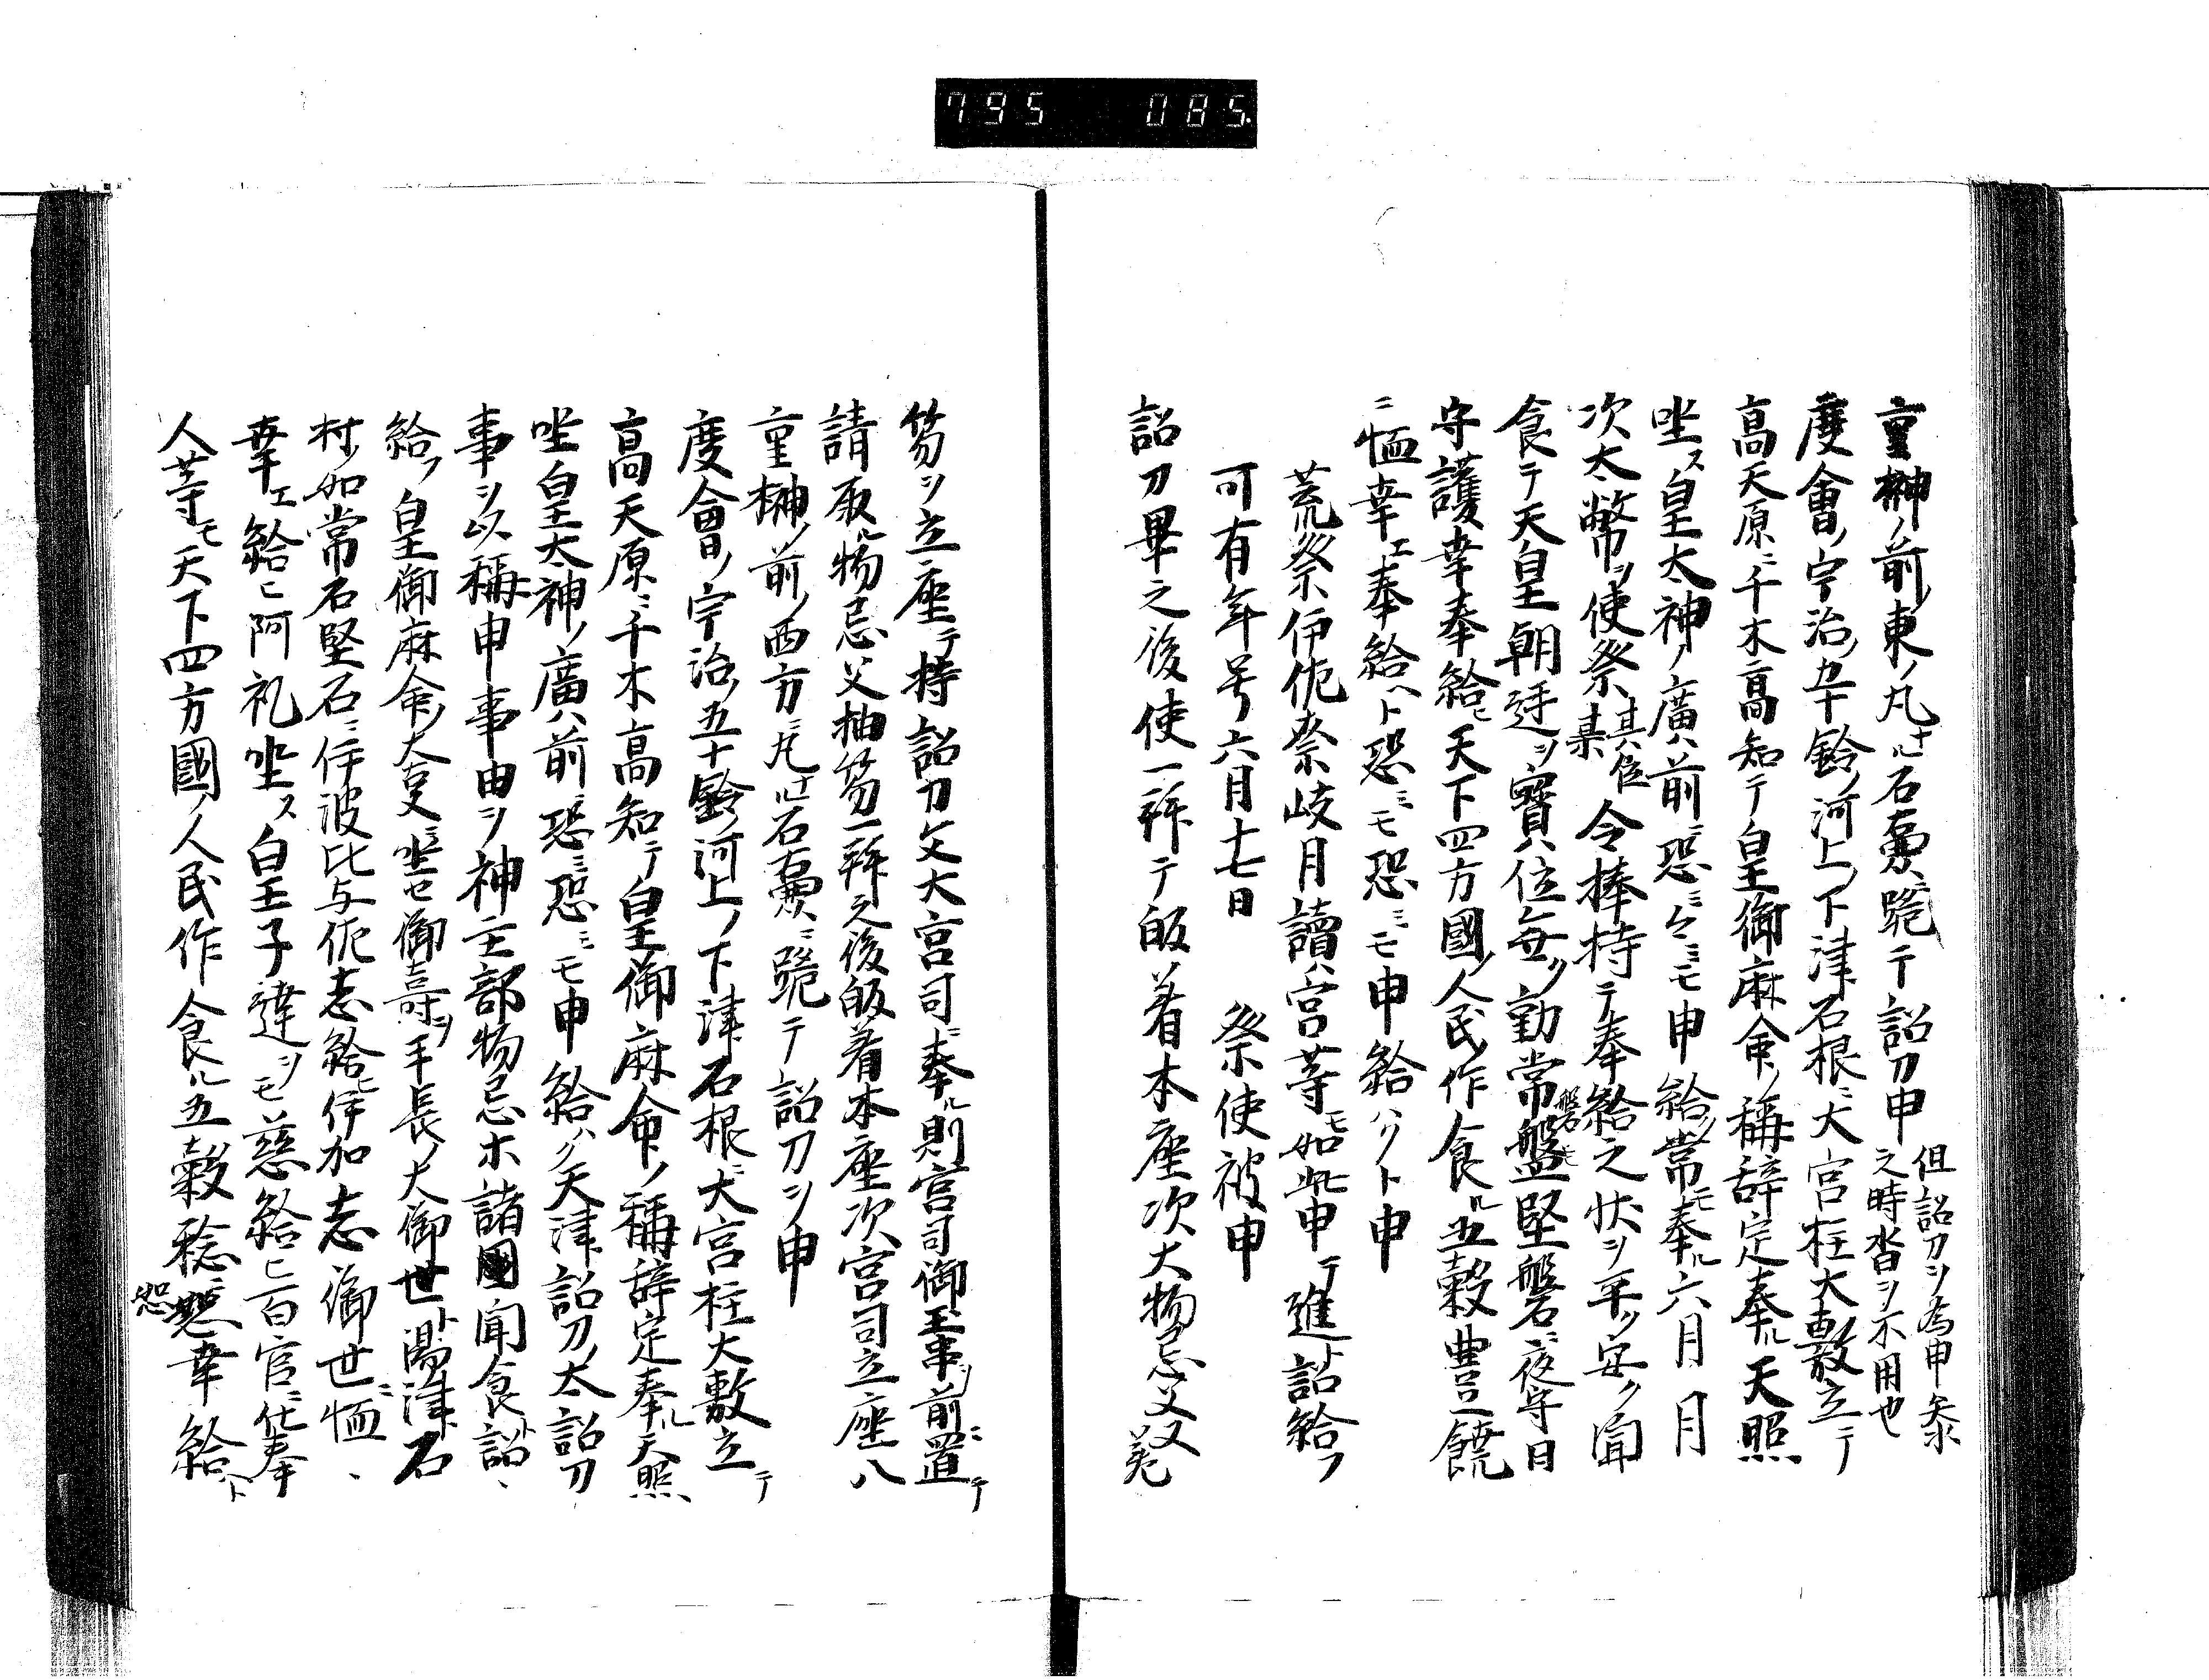 795 085.
重榊ノ前東ノ凡ナル石壺ニ跪テ詔刀申 但詔刀ヲ為申參之時沓ヲ不用也
度會ノ宇治五十鈴ノ河上ノ下津石根ニ大宮柱太敷立テ
高天原ニ千木高知テ皇御麻命ノ稱辞定奉ル天照
坐ス皇太神ノ廣前ニ恐ミ々ミモ申給ク常モ奉ル六月月
次太幣ヲ使祭其位某令捧持テ奉給之状ヲ平ク安ク聞
食テ天皇朝廷ヲ寶位無動常盤堅磐ニ夜守日
守護幸奉給ヒ天下四方國ノ人民ノ作食ル五穀豊饒
ニ恤幸エ奉給ヘト恐ミモ恐ミモ申給ハクト申
荒祭伊佐奈岐月讀宮等モ如此申テ進ト詔給フ
可有年号六月十七日 祭使被申
詔刀畢之後使一拝テ皈着本座次大物忌父又
笏ヲ立座テ持詔刀文大宮司ニ奉ル則宮司御玉串ヲ前ニ置テ
請取ル物忌父抽笏一拝之後皈着本座次宮司立座八
重榊ノ前ノ西方ニ凡ナル石壺ニ跪テ詔刀ヲ申
度會ノ宇治ノ五十鈴ノ河上ノ下津石根ニ大宮柱太敷立テ
高天原ニ千木高知テ皇御麻命ノ稱辞定奉ル天照
坐皇太神ノ廣前ニ恐ミ恐ミモ申給ハク天津詔刀ノ太詔刀
事ヲ以稱申事由ヲ神主部物忌ホ諸聞食ト詔
給ノ皇御麻命ノ大夏ニ坐セ御壽ヲ手長ノ大御世ト湯津石
村ノ如常石堅石ニ伊波比与佐志給ヒ伊加志御世ニ恤
幸エ給ヒ阿礼坐ス皇子達ヲモ慈給ヒ百官ニ仕奉
人等モ天下四方國ノ人民ノ作食ル五穀稔ニ慈幸給ト